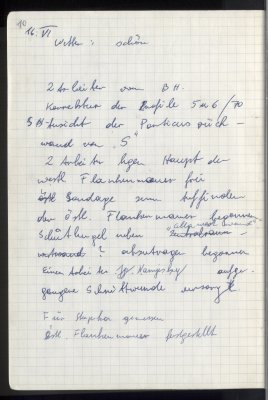 10
16. VI
Wetter: schön
2 Arbeiter vom BH.
Korrektur der Profile 5 u 6 / 70
SH Ansicht der Porticus rück-
wand von "S"
2 Arbeiter legen Haupt der
westl Flankenmauer frei
östl Sondage zum Auffinden
der östl. Flankenmauer begonnen
Schutthügel neben
abzutragen begonnen
Einen Arbeiter
gangene Schnittwunde versorgt
Für Stephan gemessen
östl. Flankenmauer festgestellt